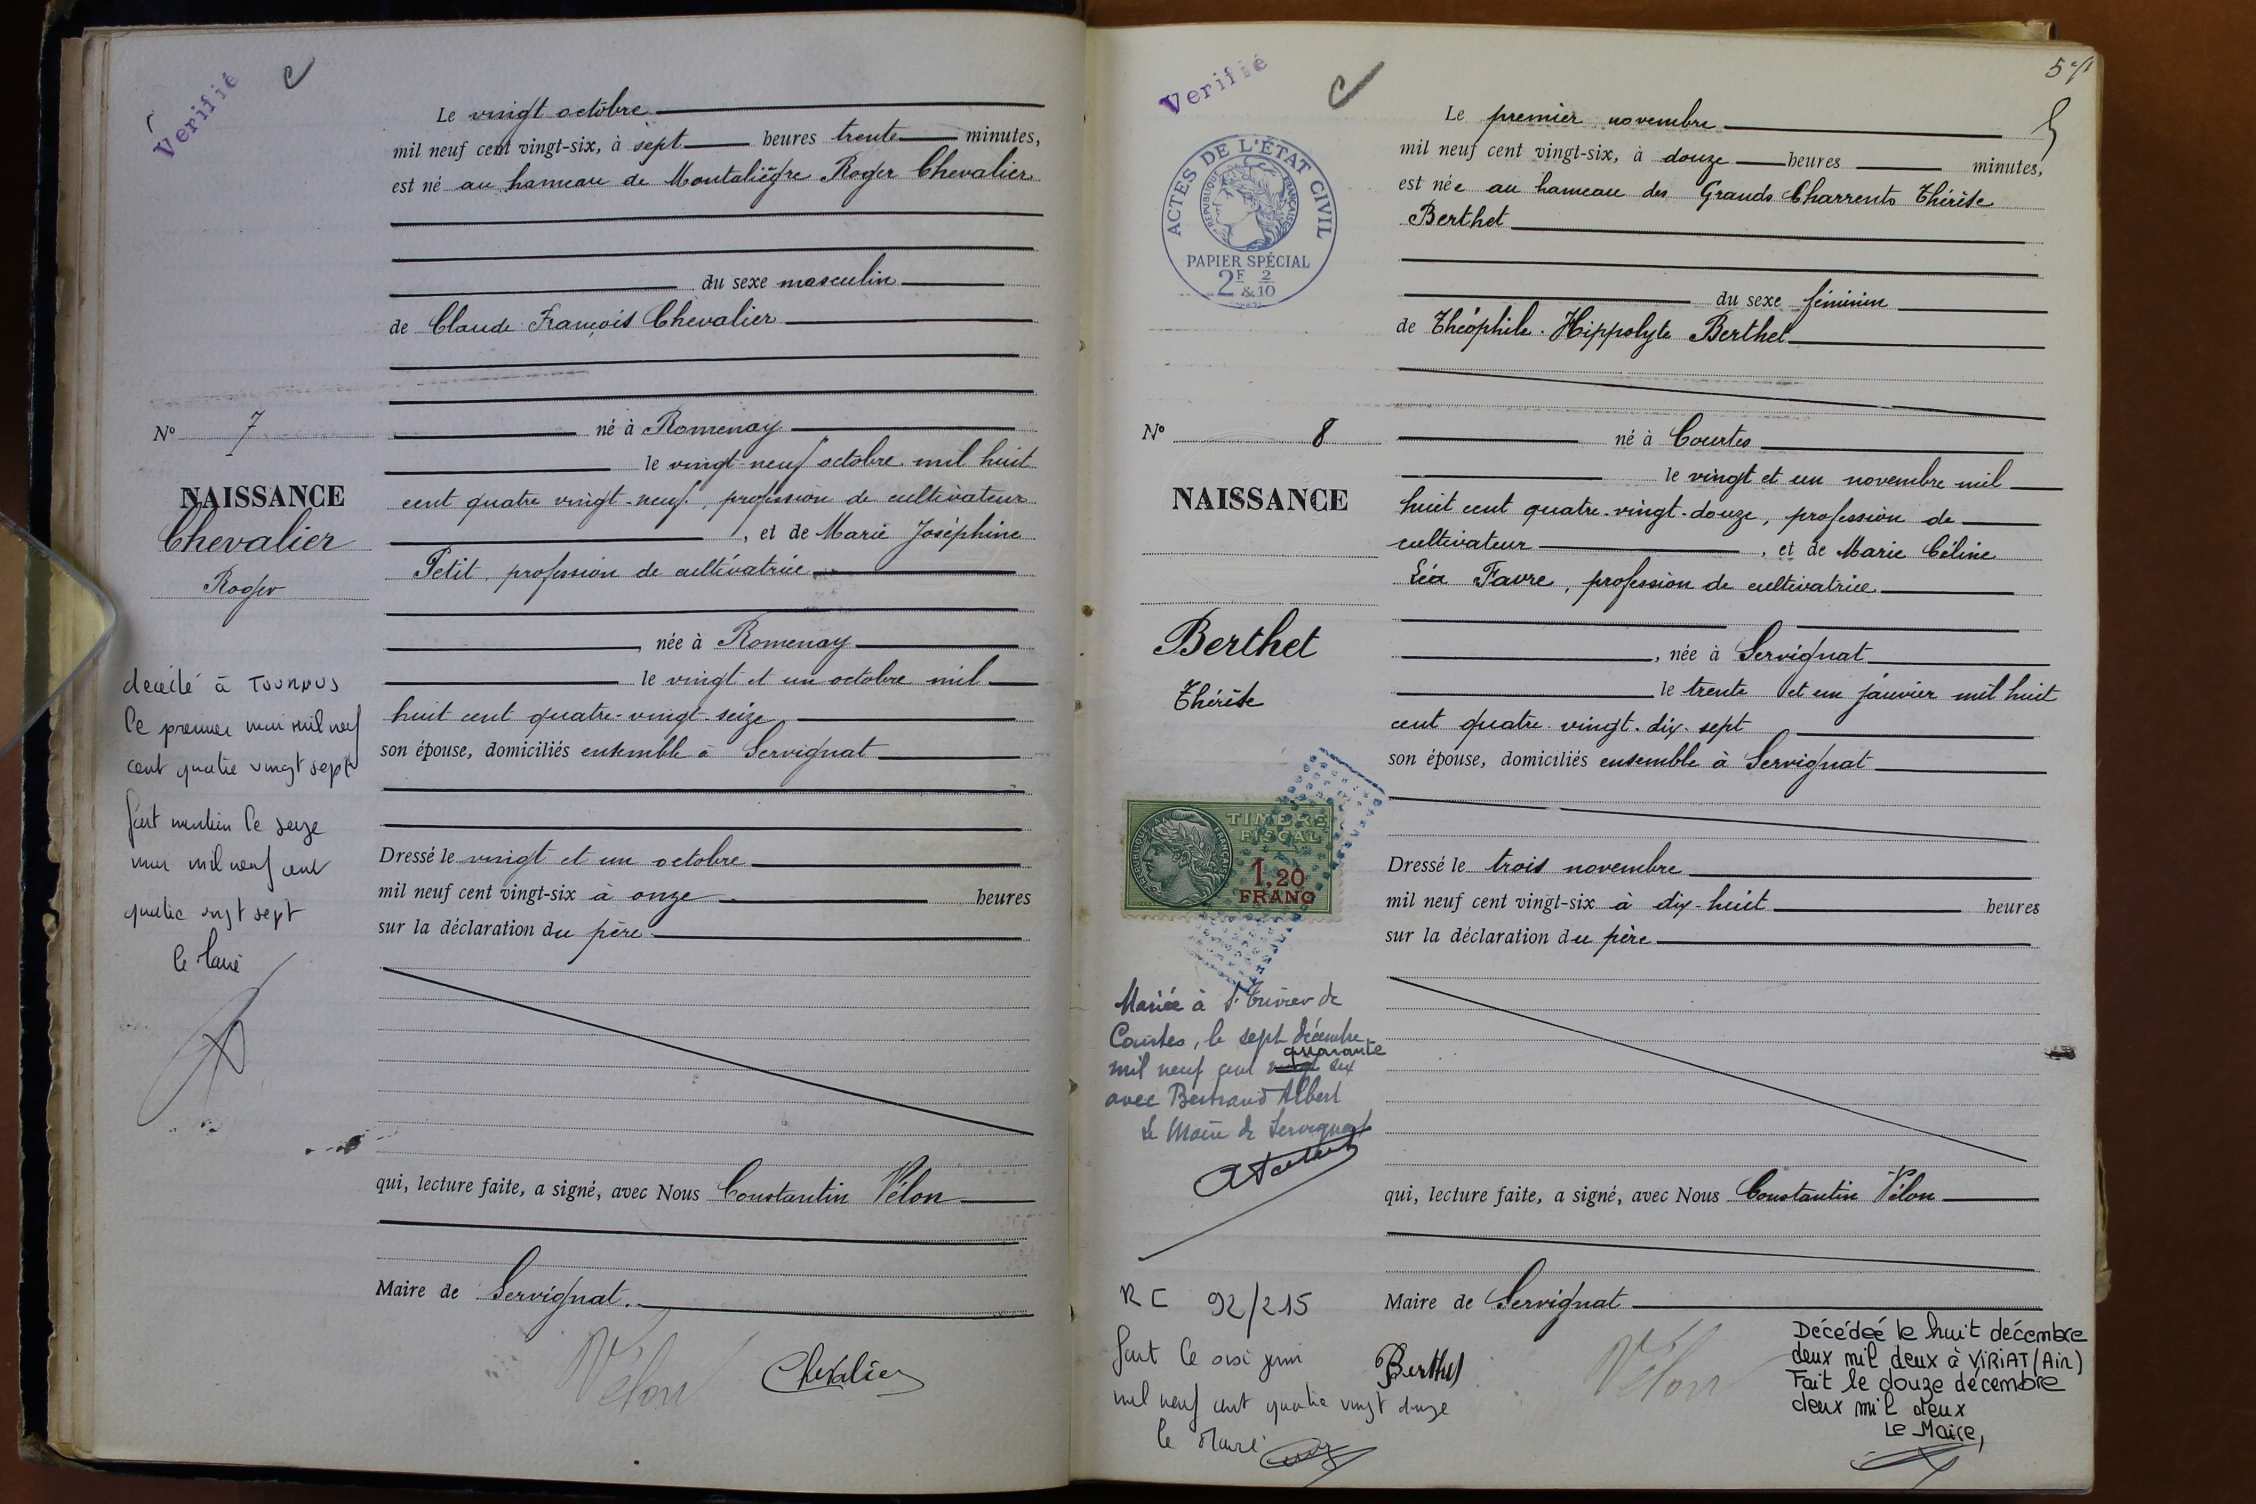 Verifié
Le vingt octobre
mil neuf cent vingt-six, à sept heures trente minutes,
est né au hameau de Montaliègre Roger Chevalier
du sexe masculin
de Claude François Chevalier
N° 7
né à Romenay
le vingt-neuf octobre mil huit
NAISSANCE
cent quatre vingt-neuf, profession de cultivateur
Chevalier
, et de Marie Joséphine
Roger
Petit, profession de cultivatrice
, née à Romenay
le vingt et un octobre mil
huit cent quatre-vingt-seize
son épouse, domiciliés ensemble à Servignat
décédé à Tournus
le premier mai mil neuf
cent quatre vingt sept
fait mention le seize
mai mil neuf cent
quatre vingt sept
le Maire
Dressé le vingt et un octobre
mil neuf cent vingt-six à onze heures
sur la déclaration du père
qui, lecture faite, a signé, avec Nous Constantin Vélon
Maire de Servignat.
Vélon Chevalier
Verifié
5
Le premier novembre
mil neuf cent vingt-six, à douze heures minutes,
est née au hameau des Grands Charrents Thérèse
Berthet
ACTES DE L'ÉTAT CIVIL
RÉPUBLIQUE FRANÇAISE
PAPIER SPÉCIAL
2F & 2/10
du sexe féminin
de Théophile Hippolyte Berthet
N° 8
né à Courtes
le vingt et un novembre mil
NAISSANCE
huit cent quatre-vingt-douze, profession de
cultivateur , et de Marie Céline
Léa Favre, profession de cultivatrice
Berthet
Thérèse
, née à Servignat
le trente et un janvier mil huit
cent quatre-vingt-dix-sept
son épouse, domiciliés ensemble à Servignat
TIMBRE
FISCAL
1,20
FRANC
RÉPUBLIQUE FRANÇAISE
Dressé le trois novembre
mil neuf cent vingt-six à dix-huit heures
sur la déclaration du père
Mariée à St Trivier de
Courtes, le sept décembre
quarante
mil neuf cent vingt six
avec Bertrand Albert
Le Maire de Servignat
qui, lecture faite, a signé, avec Nous Constantin Vélon
Maire de Servignat
RC 92/215
fait le juin
mil neuf cent quatre vingt douze
le Maire
Berthet Vélon
Décédée le huit décembre
deux mil deux à VIRIAT (Ain)
Fait le douze décembre
deux mil deux
Le Maire,